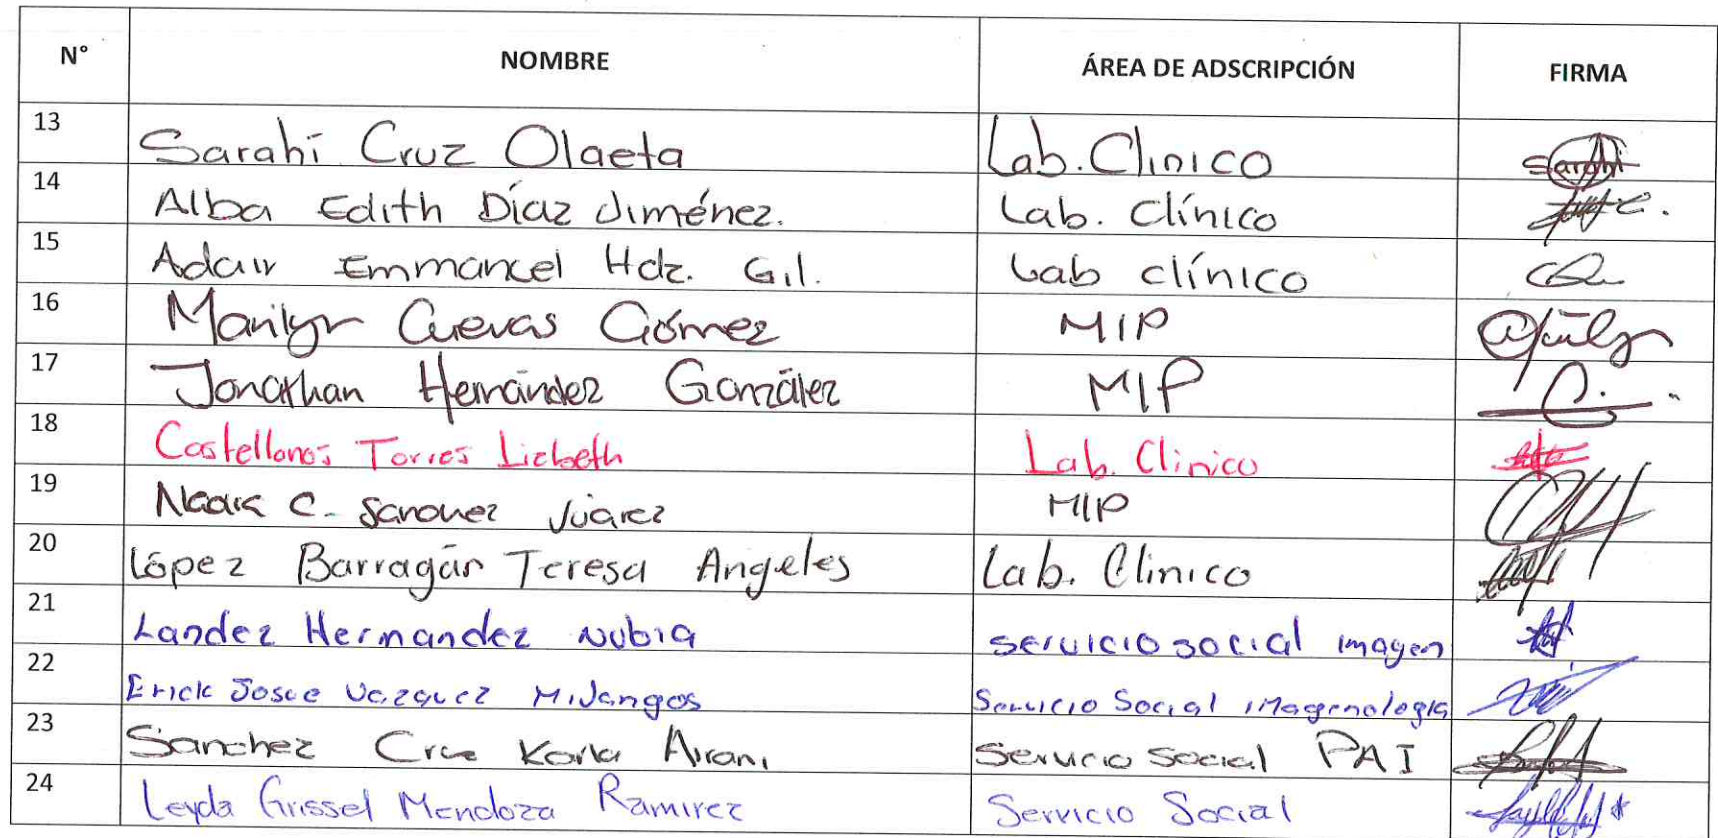 N° NOMBRE ÁREA DE ADSCRIPCIÓN FIRMA
13 Sarahi Cruz Olaeta Lab. Clinico Sarahi
14 Alba Edith Díaz Jiménez. Lab. Clínico
15 Adair Emmanuel Hdz. Gil. Lab clínico
16 Marilyn Cuevas Gómez MIP
17 Jonathan Hernández González MIP
18 Castellanos Torres Lizbeth Lab. Clinico
19 C. Sanchez Juárez MIP
20 López Barragán Teresa Angeles Lab. Clinico
21 Landez Hernandez Nubia servicio social imagen
22 Erick Josue Vazquez Mijangos Servicio Social imagenologia
23 Sanchez Cruz Karla Airani Servicio social PAI
24 Leyda Grissel Mendoza Ramirez Servicio Social